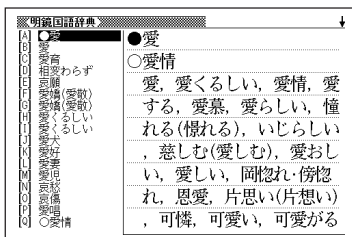 明鏡国語辞典
[A] ○愛
[B] 愛
[C] 愛育
[D] 相変わらず
[E] 哀願
[F] 愛嬌(愛敬)
[G] 愛嬌(愛敬)
[H] 愛くるしい
[I] 愛くるしい
[J] 愛犬
[K] 愛好
[L] 愛妻
[M] 愛児
[N] 哀愁
[O] 哀傷
[P] 愛唱
[Q] ○愛情
●愛
○愛情
愛, 愛くるしい, 愛情, 愛
する, 愛慕, 愛らしい, 憧
れる(憬れる), いじらしい
, 慈しむ(愛しむ), 愛おし
い, 愛しい, 岡惚れ・傍惚
れ, 恩愛, 片思い(片想い)
, 可憐, 可愛い, 可愛がる